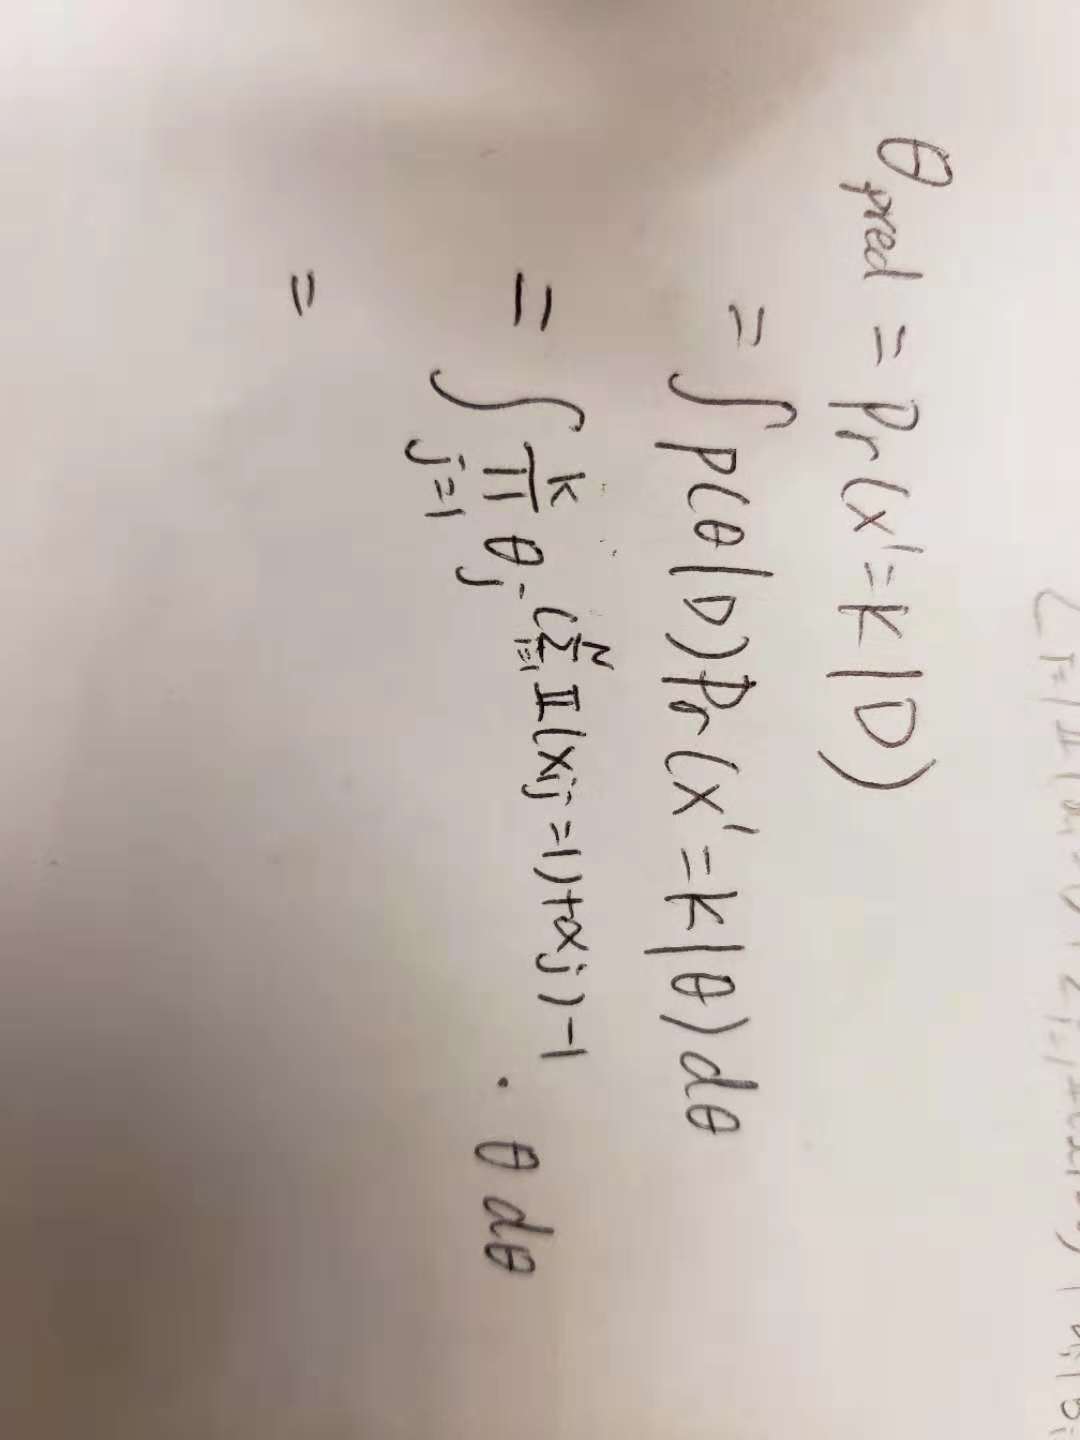 θ_pred = Pr(x'=k|D)
= ∫ p(θ|D) Pr(x'=k|θ) dθ
= ∫ ∏_{j=1}^{k} θ_j^{(∑_{i=1}^{N} 𝕀(x_{ij}=1)+α_j)-1} · θ dθ
=